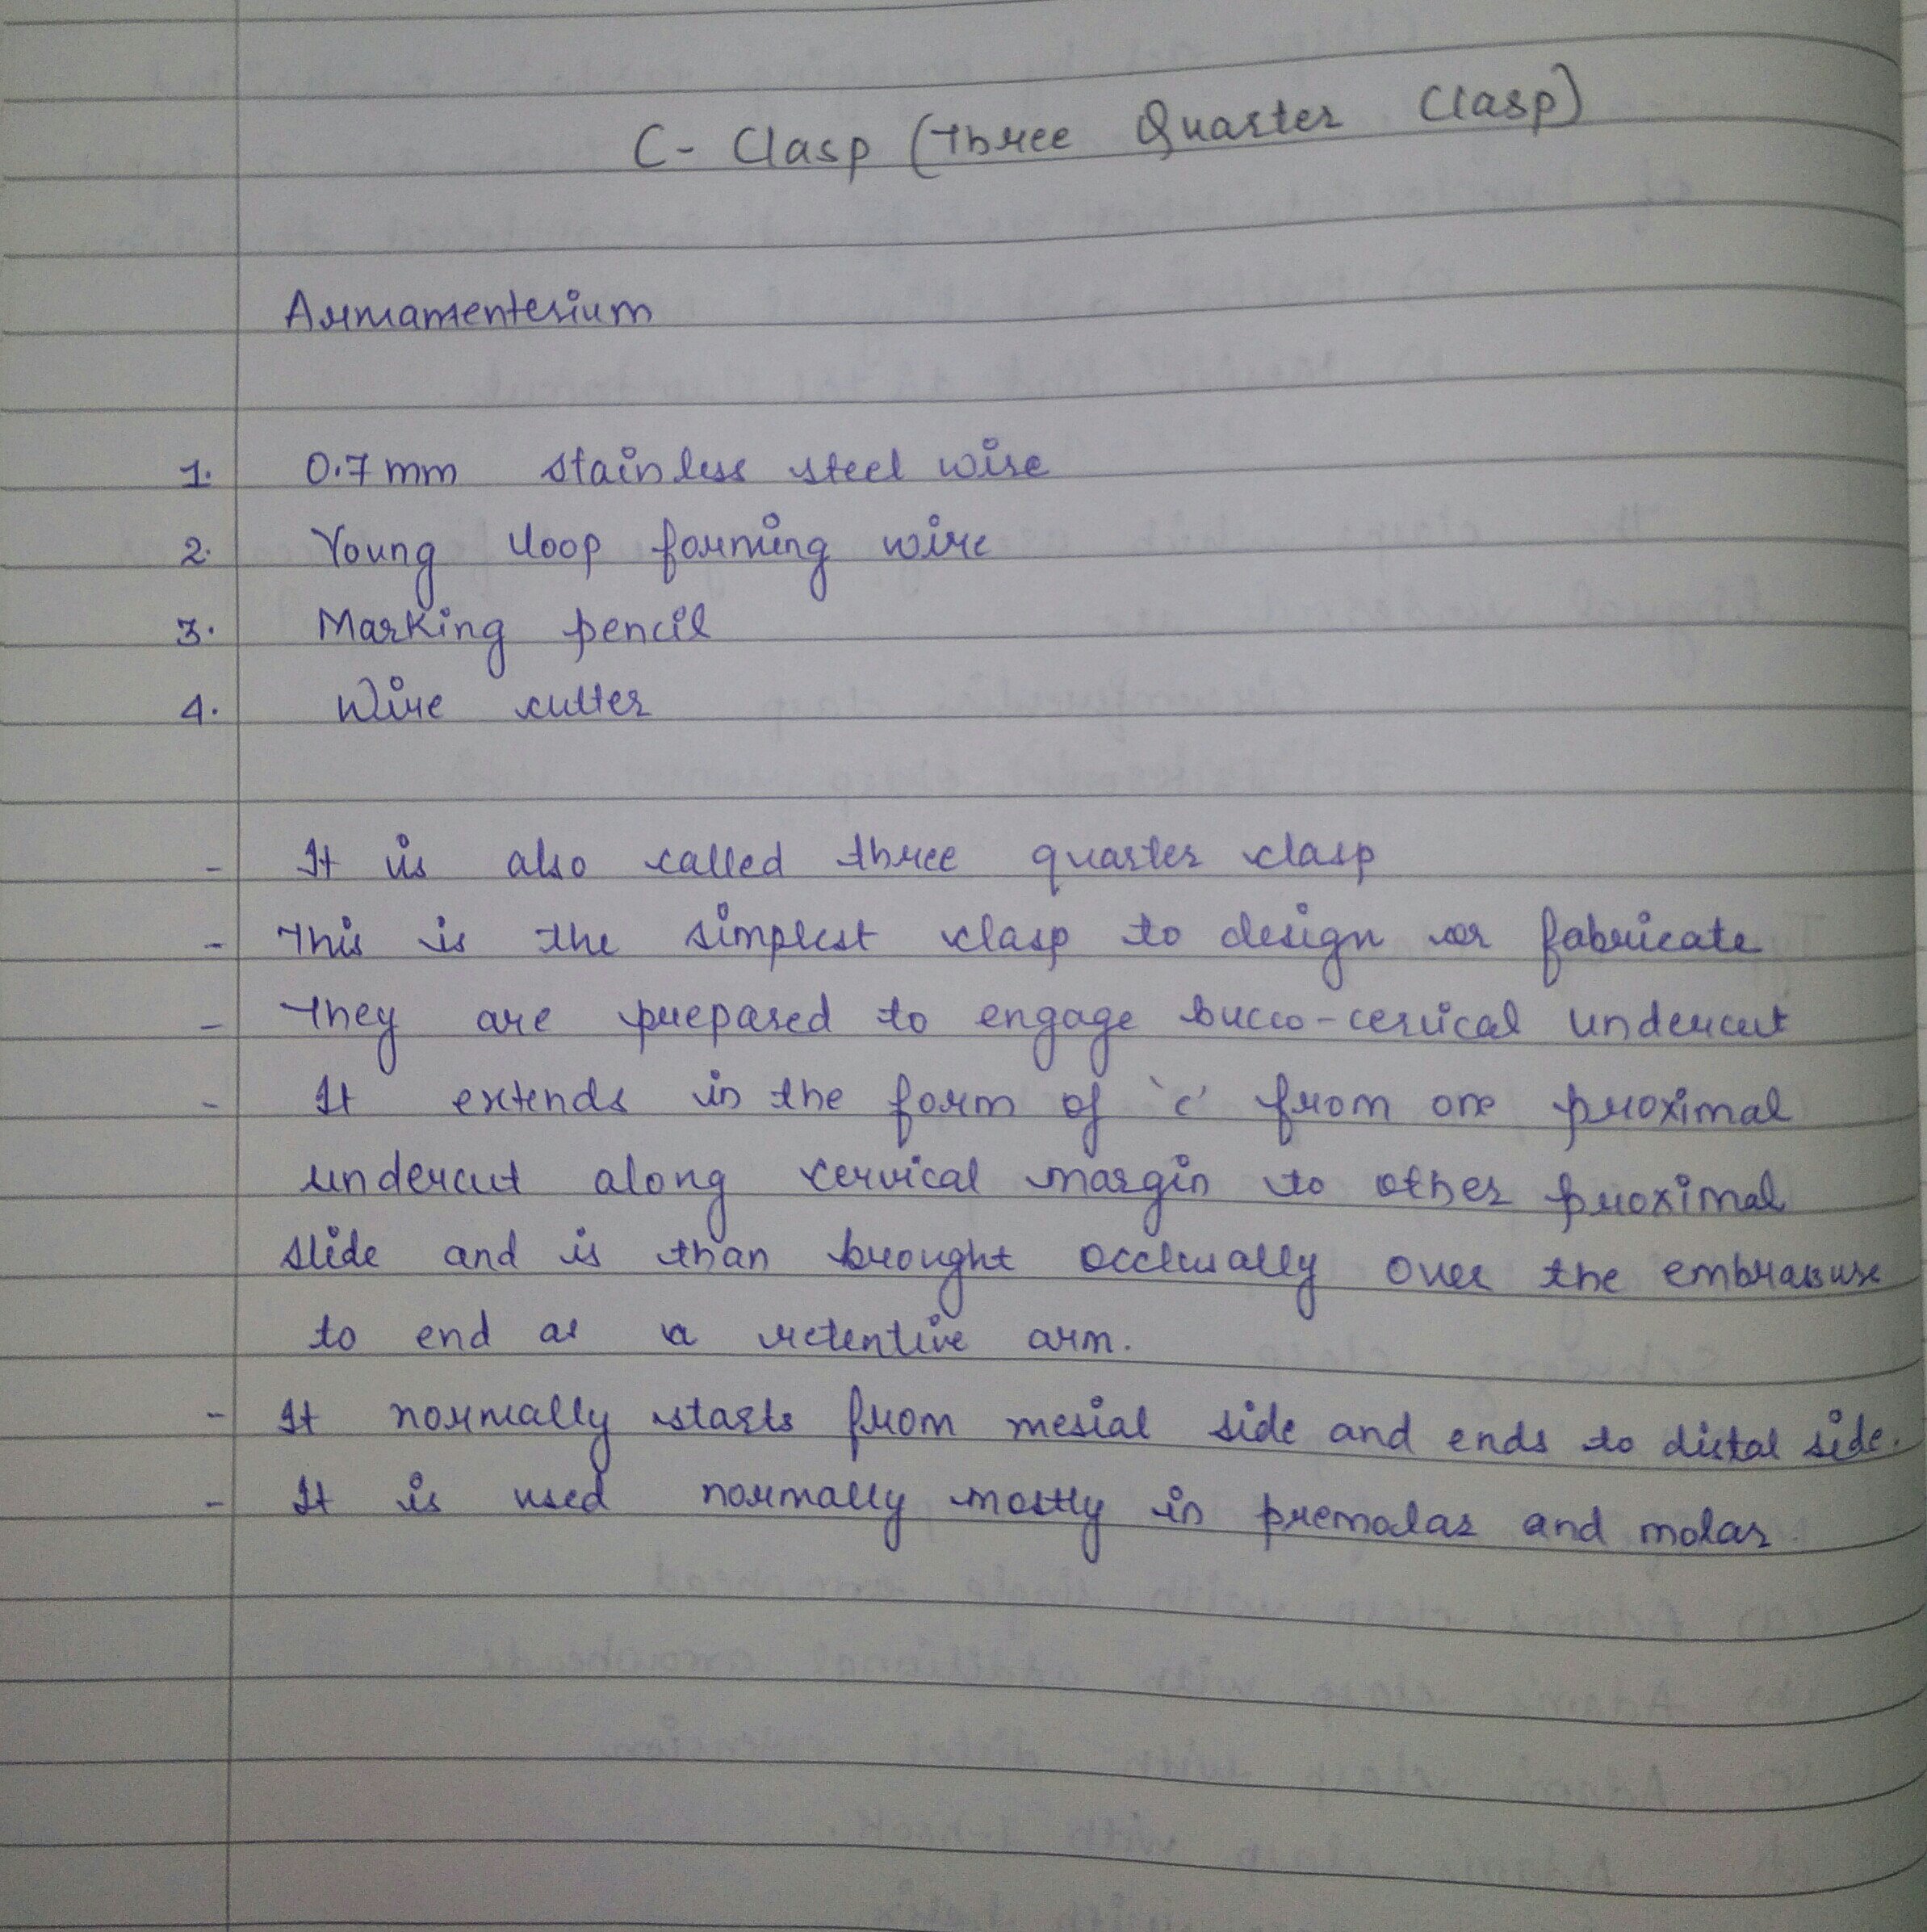 C- Clasp (Three Quarter Clasp)
Armamenterium
1. 0.7 mm stainless steel wire
2. Young loop forming wire
3. Marking pencil
4. Wire cutter
- It is also called three quarter clasp
- This is the simplest clasp to design or fabricate
- They are prepared to engage bucco-cervical undercut
- It extends in the form of 'c' from one proximal
undercut along cervical margin to other proximal
slide and is than brought occlusally over the embrasure
to end as a retentive arm.
- It normally starts from mesial side and ends to distal side.
- It is used normally mostly in premolar and molar.